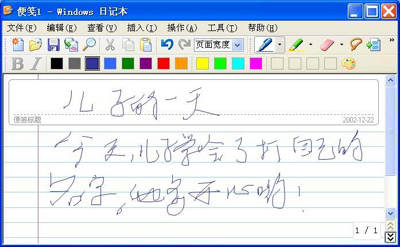 便笺1 - Windows 日记本
文件(F) 编辑(E) 查看(V) 插入(I) 操作(A) 工具(T) 帮助(H)
页面宽度
B I
儿子的一天
便笺标题 2002-12-22
今天,儿子学会了打自己的
名字。他多开心哟!
1 / 1